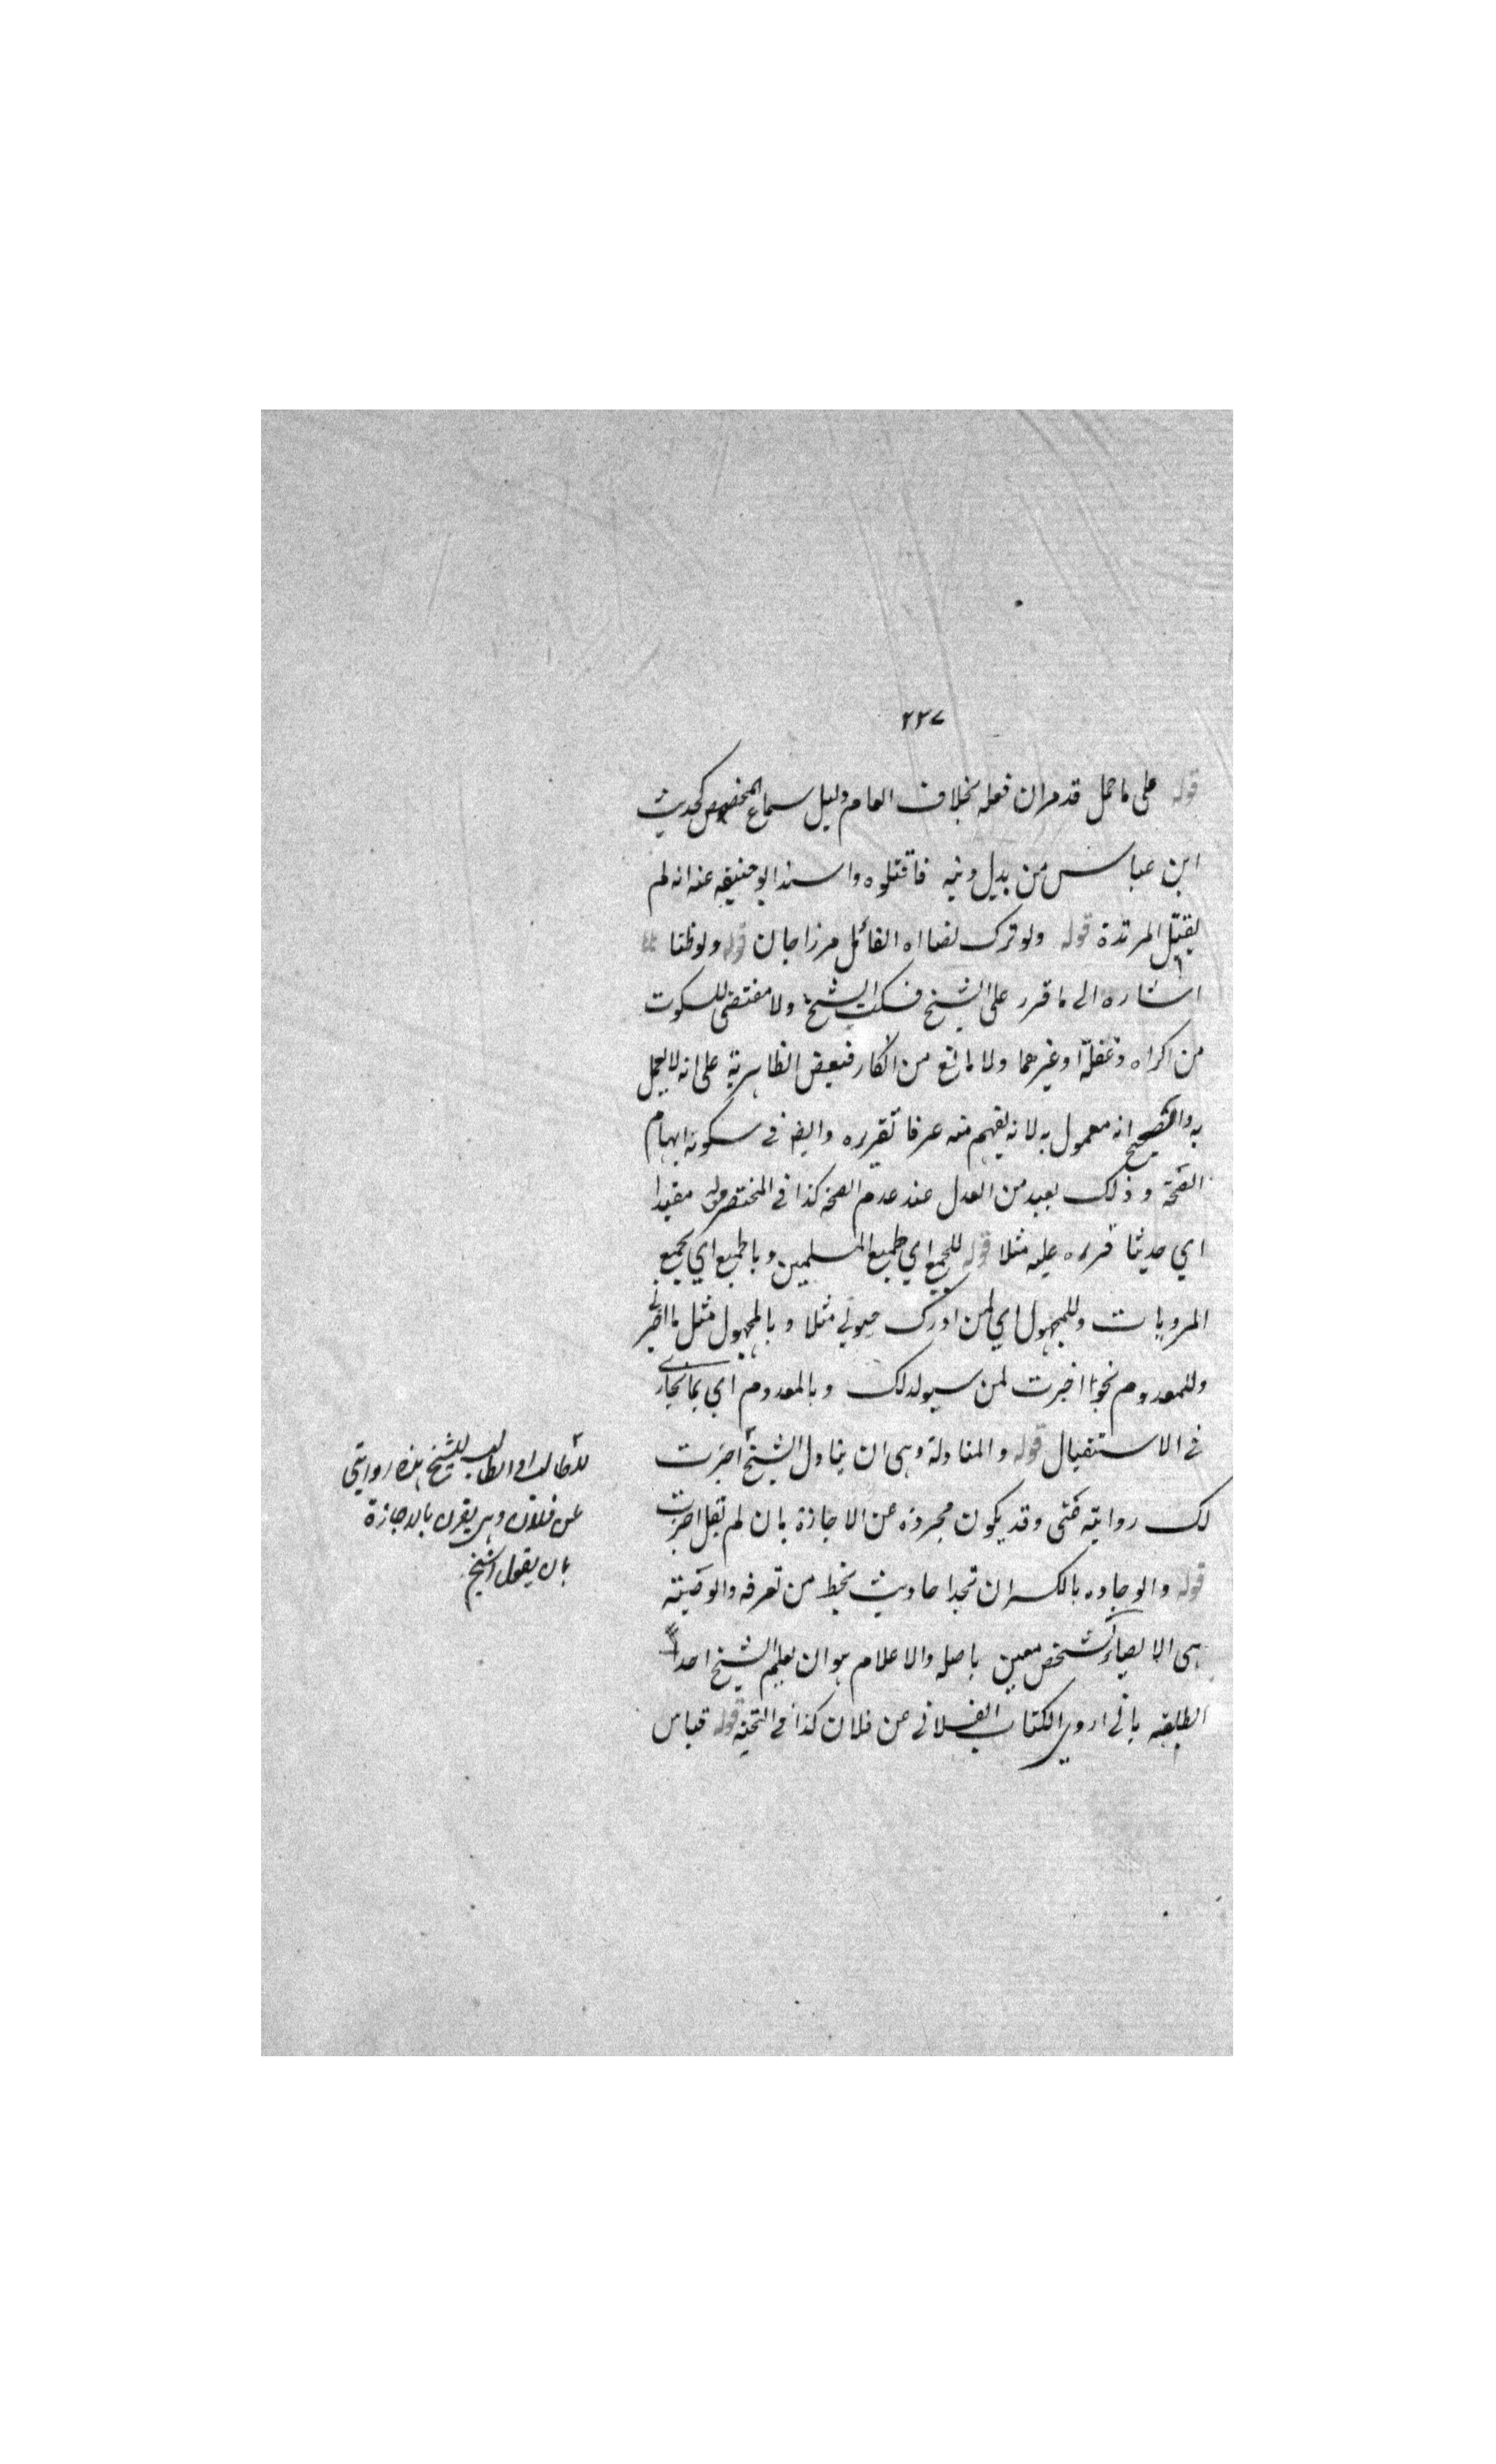 ٢٣٧
قوله على ما حمل قد مر ان فعله بخلاف العام دليل سماع المخصص كحديث
ابن عباس من بدل دينه فاقتلوه واسند ابو حنيفه عنه انه لم
يقتل المرتدة قوله ولو ترك نصا اه القائل مرزا جان قوله ولو ظنا
اشاره الى ما قرر على الشيخ فسكت الشيخ ولا مقتضى للسكوت
من اكراه وغفلة او غيرهما ولا مانع من الانكار فبعض الظاهرية على انه لا يعمل
به والصحيح انه معمول به لانه يفهم منه عرفا تقريره وايضا في سكوته ايهام
الصحة وذلك بعيد من العدل عند عدم الصحة كذا في المختصر قوله مقيدا
اي حديثا قرره عليه مثلا قوله للجميع اي لجميع المسلمين وبالجميع اي بجميع
المرويات وللمجهول اي لمن ادرك حيوتي مثلا وبالمجهول مثل ما اخبرني
وللمعدوم نحو اجزت لمن سيولد لك وبالمعدوم اي بما يجازى
في الاستقبال قوله والمناولة وهى ان يناول الشيخ اجزت
لك روايته عنى وقد يكون مجردة عن الاجازة بان لم يقل اجزت
قوله والوجاده بالكسر ان تجد احاديث بخط من تعرفه والوصية
هى الايصاء لشخص معين باصله والاعلام هو ان يعلم الشيخ احد
الطلبة باني اروي الكتاب الفلاني عن فلان كذا في التحية قوله قياس
للطالب او الطالب للشيخ هذه روايتي
عن فلان وهى يقرن بالاجازة
بان يقول الشيخ